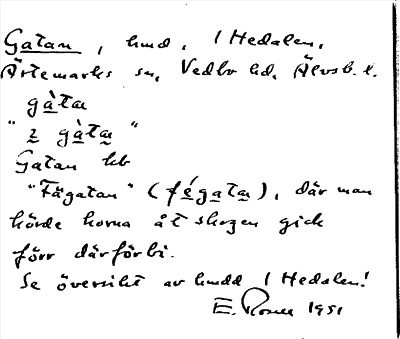 Gatan, hmd, 1 Hedalen,
Ärtemarks sn, Vedbo hd, Älvsb. l.
gàta
"2 gàta"
Gatan hb
"Fägatan" (fégata), där man
körde korna åt skogen gick
förr därförbi.
Se översikt av hmdd 1 Hedalen!
E. 1951